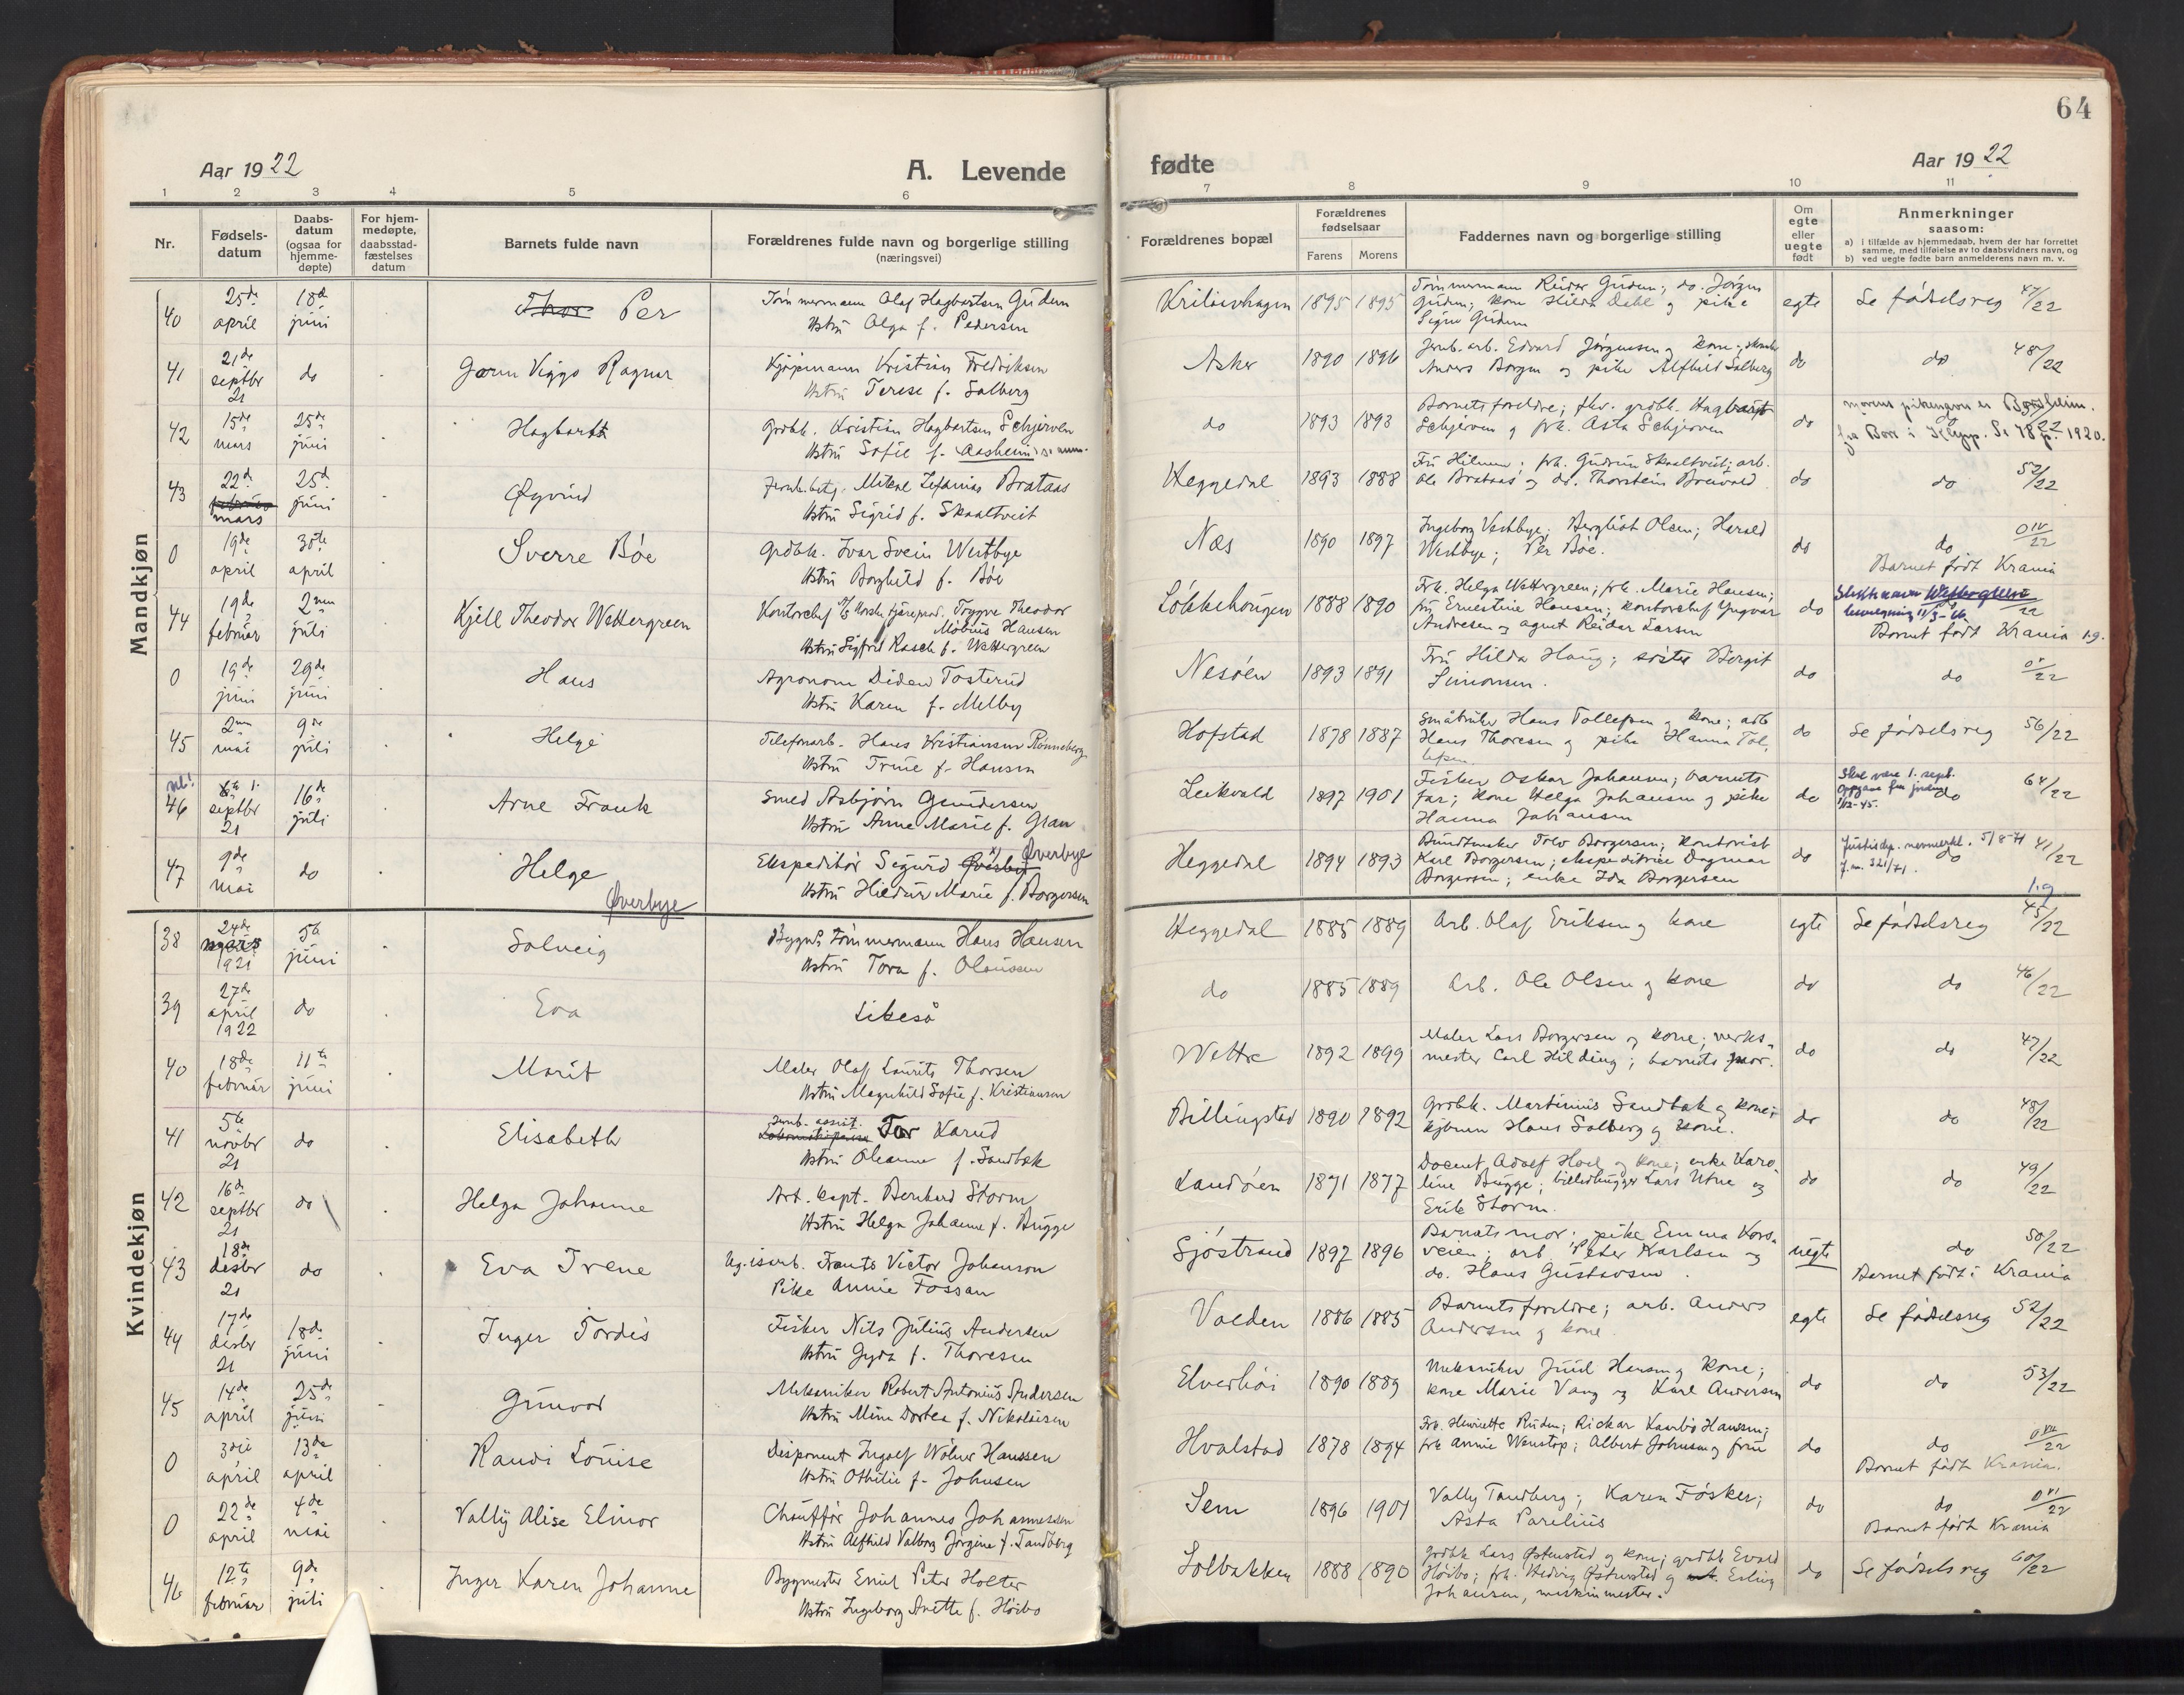 64
Aar 1922
A. Levende
fødte
Aar 1922
1 2 3 4 5 6 7 8 9 10 11
Nr.
Fødsels-
datum
Daabs-
datum
(ogsaa for
hjemme-
døpte)
For hjem-
medøpte,
daabsstad-
fæstelses
datum
Barnets fulde navn
Forældrenes fulde navn og borgerlige stilling
(næringsvei)
Forældrenes bopæl
Forældrenes
fødselsaar
Farens Morens
Faddernes navn og borgerlige stilling
Om
egte
eller
uegte
født
Anmerkninger
saasom:
a) i tilfælde av hjemmedaab, hvem der har forrettet
samme, med tilføielse av to daabsvidners navn, og
b) ved uegte fødte barn anmelderens navn m. v.
Mandkjøn
40 25de april 18de juni Thor Per
Tømmermann Olaf Hagbartsen Gudem
Hstru Olga f. Pedersen
1895 1895
Tømmermann Reidar Gudem; do. Jørgen
Gudem; kone Hilda Dahl og pike
Signe Gudem
egte Se fødselsreg 47/22
41 21de septbr 21 do Gorm Viggo Ragnar
Kjøpmann Kristian Fredriksen
Hstru Terese f. Solberg
Asker 1890 1896
Jernb. arb. Edvard Jørgensen og kone;
Anders Borgen og pike Alfhild Solberg
do do 48/22
42 15de mars 25de juni Hagbart
Grdbr. Kristian Hagbartsen Schjerven
Hstru Sofie f. Aasheim
do 1893 1893
Barnets foreldre; fhv. grdbr. Hagbart
Schjerven og frk. Asta Schjerven
do
morens pikenavn er Borsheim.
fra Bore i Klepp. 1920.
43 22de februar mars 25de juni Øyvind
Jernb.betj. Mikal Zefanias Brataas
Hstru Sigrid f. Skaaltveit
Heggedal 1893 1888
Fru Hilmen; frk. Gudrun Skaaltveit; arb.
Ole Brataas og do. Thorstein Breivold
do do 52/22
0 19de april 30te april Sverre Bøe
Grdbr. Ivar Svein Westbye
Hstru Borghild f. Bøe
Næs 1890 1897
Ingeborg Vestbye; Bergliot Olsen; Harald
Westbye; Per Bøe.
do do 0 IV/22
Barnet født Krania
44 19de februar 2nen juli Kjell Theodor Wettergreen
Kontorchef A/S Norsk tjæreprod. Trygve Theodor
Møbius Hansen
Hstru Sigfrid Rasch f. Wettergreen
Løkkehaugen 1888 1890
Frk. Helga Wettergreen; frk. Marie Hansen;
fru Ernestine Hansen; kontorchef Yngvar
Andresen og agent Reidar Larsen
do
Slektsnavn Wettergreen
22
Barnet født Krania 1.g.
0 19de juni 29de juni Hans
Agronom Diden Tosterud
Hstru Karen f. Melby
Nesøen 1893 1891
Fru Hilda Haug; søster Borgit
Simonsen.
do do 0 V/22
45 2nen mai 9de juli Helge
Telefonarb. Hans Kristiansen Rønneberg
Hstru Trine f. Hansen
Hofstad 1878 1887
Småbruker Hans Tollefsen og kone; arb
Hans Thoresen og pike Hanna Tol-
lefsen
do Se fødselsreg 56/22
nb! 46 6te 1. septbr 21 16de juli Arne Frank
Smed Asbjørn Gundersen
Hstru Anne Marie f. Gran
Leikvold 1897 1901
Fisker Oskar Johansen; barnets
far; kone Helga Johansen og pike
Hanna Johansen
do
Skal være 1. sept.
Oppgave fra
1/12-45.
do 64/22
47 9de mai do Helge
Øverbye
Ekspeditør Sigurd Øverby x) Øverbye
Hstru Hildur Marie f. Borgersen
Heggedal 1894 1893
Buntmaker Tolv Borgersen; kontorist
Karl Borgersen; ekspeditrice Dagmar
Borgersen; enke Ida Borgersen
do
Justisdep. navnemerkl. 5/8-71
J.nr. 321/71.
do 41/22
1.g.
Kvindekjøn
38 24de mars 1921 5te juni Solveig
Bygn. Tømmermann Hans Hansen
Hstru Tora f. Olaussen
Heggedal 1885 1889
Arb. Olaf Eriksen og kone
egte Se fødselsreg 45/22
39 27de april 1922 do Eva
Likeså
do 1885 1889
Arb. Ole Olsen og kone
do do 46/22
40 18de februar 11te juni Marit
Maler Olaf Laurits Thorsen
Hstru Magnhild Sofie f. Kristiansen
Wettre 1892 1899
Maler Lars Borgersen og kone; verks-
mester Carl Hilding; barnets mor.
do do 47/22
41 5te novbr 21 do Elisabeth
Jernb. assist. Tor Karud
Hstru Oleanne f. Sandbæk
Billingstad 1890 1892
Grdbr. Martinius Sandbæk og kone;
kjøbmn Hans Solberg og kone.
do do 48/22
42 16de septbr 21 do Helga Johanne
Art. kapt. Bernhard Storm
Hstru Helga Johanne f. Bugge
Landøen 1871 1877
Docent Adolf Hoel og kone; enke Karo-
line Bugge; billedhugger Lars Utne og
Erik Storm.
do do 49/22
43 18de desbr 21 do Eva Irene
Ug. isarb. Frants Victor Johanson
Pike Annie Fossan
Sjøstrand 1897 1896
Barnets mor; pike Emma Kors-
veien; arb. Peter Karlsen og
do. Hans Gustavsen.
uegte do 50/22
Barnet født i Krania
44 17de desbr 21 18de juni Inger Tordis
Fisker Nils Julius Andersen
Hstru Gyda f. Thoresen
Vøeden 1886 1885
Barnets foreldre; arb. Anders
Andersen og kone.
egte Se fødselsreg 52/22
45 14de april 25de juni Gunvor
Mekaniker Robert Antonius Andersen
Hstru Mina Dortea f. Nikolaisen
Elverhøi 1890 1889
Mekaniker Juul Hansen og kone;
kone Marie Vang og Karl Andersen
do do 53/22
0 3die april 13de april Randi Louise
Disponent Ingolf Wølner Hanssen
Hstru Othilie f. Johnsen
Hvalstad 1878 1894
Frk. Henriette Ruden; Rickar Kaarbø Hanssen;
frk Annie Wenstøp; Albert Johnsen og frue
do do 22
Barnet født Krania.
0 22de april 4de mai Vally Alise Elinor
Chauffør Johannes Johannessen
Hstru Alfhild Valborg Jørgine f. Tandberg
Sem 1896 1901
Vally Tandberg; Karen Fosker;
Asta Parelius
do do 22
Barnet født Krania
46 12te februar 9de juli Inger Karen Johanne
Bygmester Emil Peter Holter
Hstru Ingeborg Anette f. Høibo
Solbakken 1888 1890
Grdbr Lars Østensted og kone; grdbr Evald
Høibo; frk. Hedvig Østensted og Erling
Johansen, maskinmester.
do Se fødselsreg 60/22